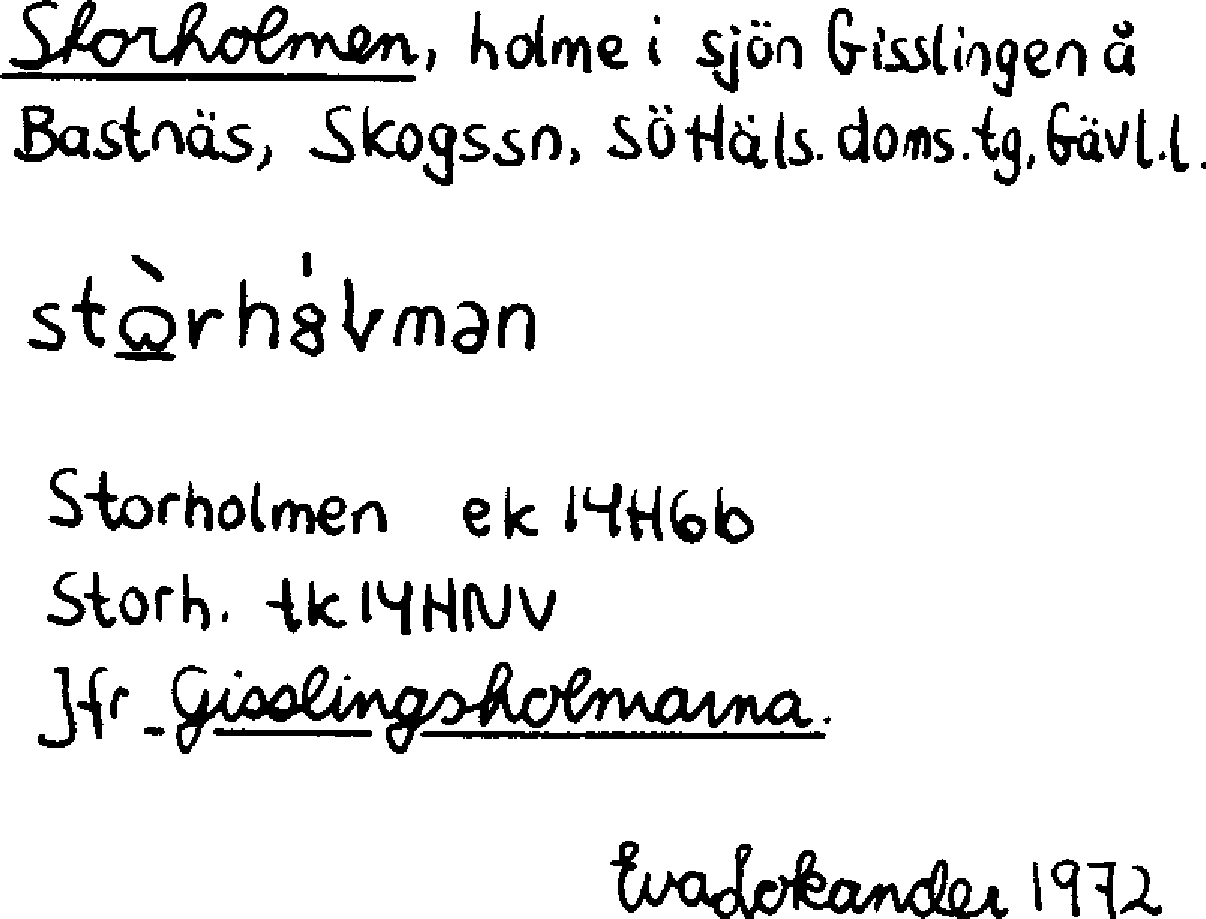 Storholmen, holme i sjön Gisslingen å
Bastnäs, Skogssn, SöHäls. doms.tg, Gävl.l.
Storholmen ek 14H6b
Storh. tk 14HNV
Jfr Gisslingsholmarna.
Eva Lokander 1972